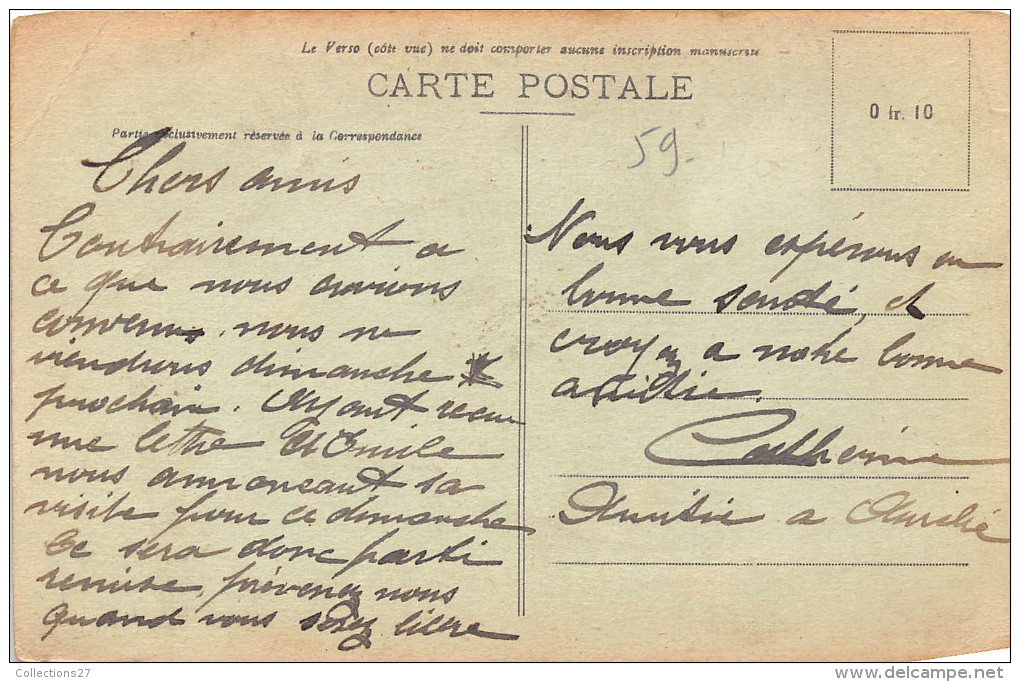 Le Verso (côté vue) ne doit comporter aucune inscription manuscrite
CARTE POSTALE
0 fr. 10
Partie exclusivement réservée à la Correspondance
59-
Chers amis
Contrairement a
ce que nous avions
convenus, nous ne
viendrons dimanche
prochain. Ayant recu
une lettre d'Emile
nous annoncant sa
visite pour ce dimanche
Ce sera donc parti
remise, prévenez nous
quand vous serez libre
Nous vous espérons en
bonne santé, et
croyez a notre bonne
amitie.
Catherine
Amitié a Aurelie
Collections27
www.delcampe.net